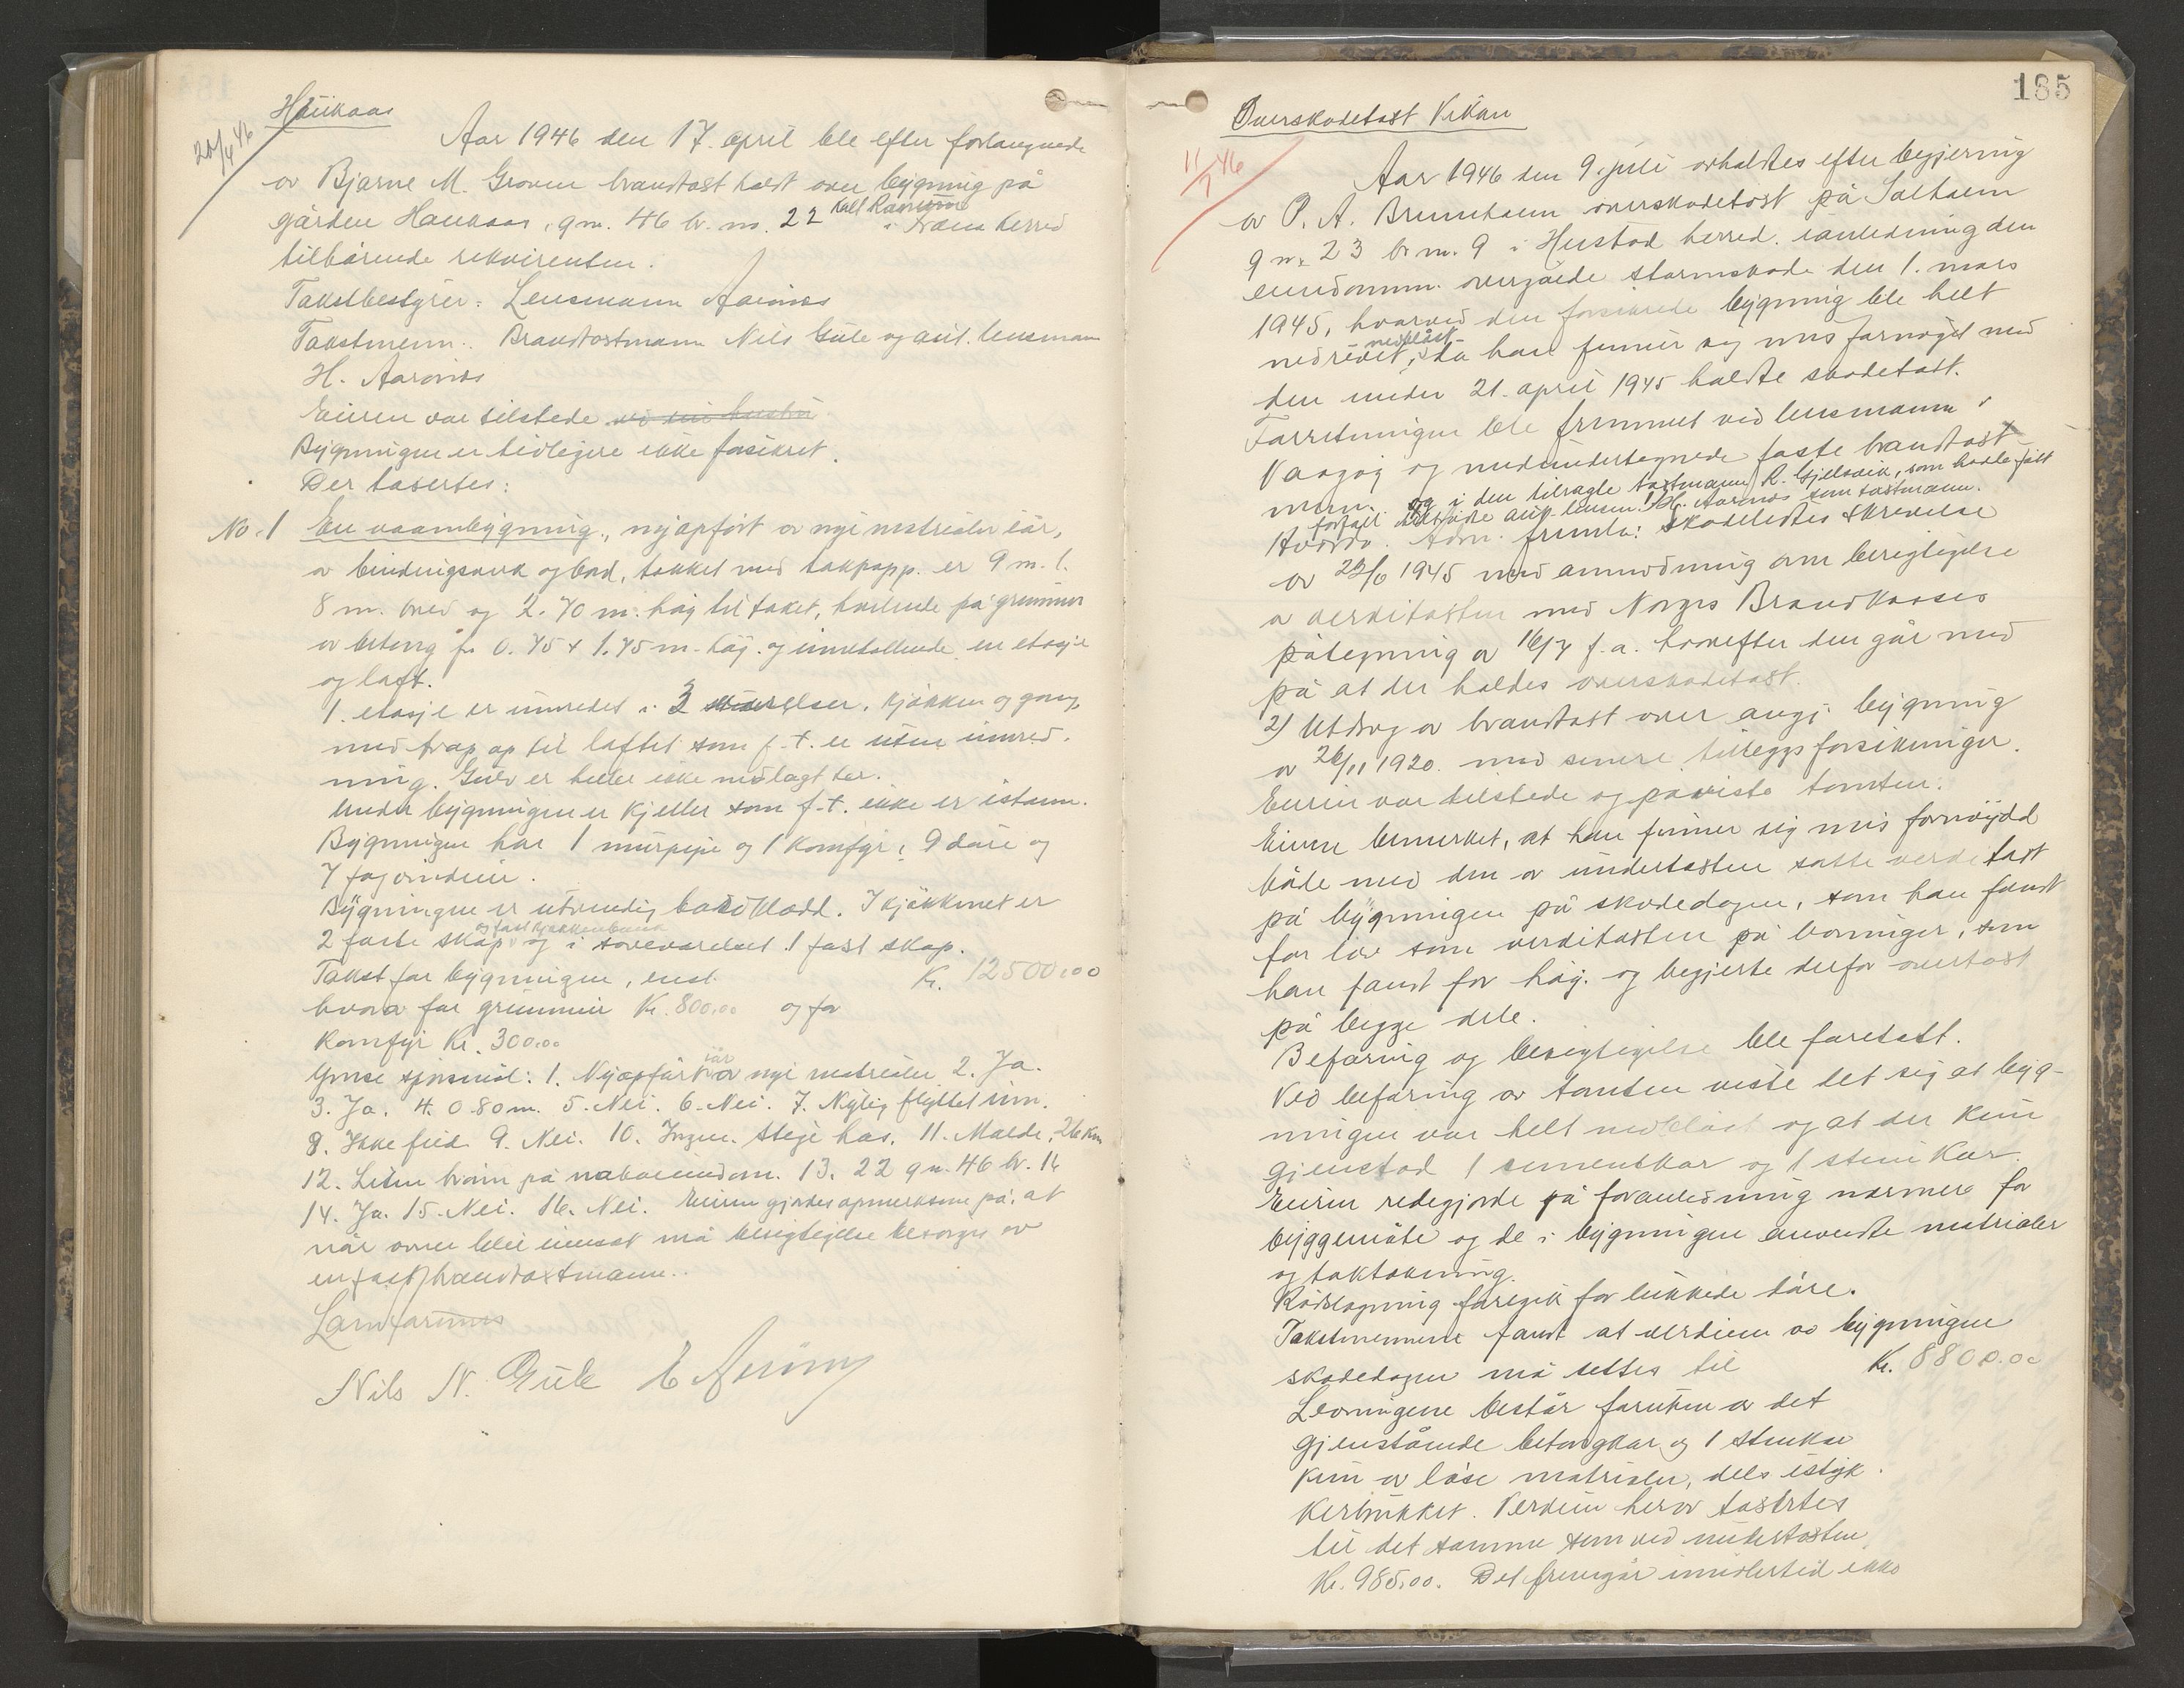 Haukaas
20/4 46
Aar 1946 den 17. april ble efter forlangende
av Bjarne M. Groven brandtast holdt over bygning på
gården Haukaas, gnr. 46 br. nr. 22 kalt i Fræna herred
tilhørende rekvirenten.
Takstbestyrer: Lensmann Aarönes
Takstmenn: Brandtastmann Nils Gule og asit. lensmann
H. Aarönes
Eieren var tilstede ved sin hustru
Bygningen er tidligere ikke forsikret.
Der taxertes:
No. 1 En vaambygning, nyopfört av nye matrialer iår,
av bindingsverk og bord, tekket med takpapp. er 9 m. l.
8 m. bred og 2.70 m. hög til taket, hvilende på grunnmur
av betong fra 0.75 x 1.75 m. höy. og inneholdende en etasje
og loft.
1. etasje er innredet i 3 værelser, kjökken og gang,
med trap op til loftet som f.t. er uten innred-
ning. Gulv er heller ikke nedlagt der.
Under bygningen er kjeller som f.t. ikke er istann.
Bygningen har 1 murpipe og 1 komfyr, 9 döre og
7 fag vinduer.
Bygningen er utvendig bordkledd. I kjökkenet er
2 faste skap og fast kjökkenbenk og i soveværelset 1 fast skap.
Takst for bygningen, enst. Kr. 12500,00
hvorav for grunnmur Kr. 800,00 og for
Komfyr Kr. 300,00
Gense spörsmål: 1. Nyopfört iår av nye matrialer 2. Ja.
3. Ja. 4. 0.80 m. 5. Nei. 6. Nei. 7. Nylig flyttet inn.
8. Ikke fred. 9. Nei. 10. Ingen. Steje has. 11. Molde, 26 km
12. Liten brönn på naboeiendom. 13. 22 gn. 46 br. 16
14. Ja. 15. Nei. 16. Nei. Eieren gjordes opmerksom på, at
når ovnen blir innsat må besigtigelse besorges av
en fast brandtaxtmann.
Nils N. Gule E Aarönes
185
Overskadetast Vikan
11/7 46
Aar 1946 den 9. juli avholdtes efter begjering
av P. A. Brunheim overskadetast på Salthaem
gnr. 23 br. nr. 9 i Hustad herred. ianledning den
eiendomm. overgåede stormskade den 1. mars
1945, hvorved den forsikrede bygning ble helt
nedrevet, nedblåst da han finner seg mis fornöget med
den under 21. april 1945 holdte skadetast.
Forretningen ble fremmet ved lensmannen i
Vaagöy og medundertegnede faste brandtast-
menn. og i den tilsagte tastmann R. Gjelsvik, som hadde fått
forfall tilkaldte asist. lensm. H. Aarönes som tastmann.
Hvorda. Adm. fremla: skadelidtes skrivelse
av 22/6 1945 med anmodning om besigtigelse
av verditasten med Norges Brandkasses
påtegning av 16/7 f.a. hvorefter den går med
på at der holdes overskadetast.
2) Utdrag av brandtast over angj. bygning
av 26/11 1920. med senere tilleggsforsikringer.
Eieren var tilstede og påviste tomten.
Eieren bemerket, at han finner sig mis fornöydd
både med den av undertasten satte verditast
på bygningen på skadedagen, som han fandt
for lav som verditasten på levninger, som
han fandt for hög. og begjerte derfor overtast
på begge dele.
Befaring og besigtigelse ble foretatt.
Ved befaring av tomten viste det sig at byg-
ningen var helt nedblåst og at der kun
gjenstod 1 sementkar og 1 stein kar.
Eieren redegjorde på foranledning nærmere for
byggemåte og de i bygningen anvendte matrialer
og taktekning.
Rådslagning foregik for lukkede döre.
Takstmennene fandt at verdien av bygningen
skadedagen må settes til Kr. 8800.00
Levningene består foruten av det
gjenstående betongkar og 1 stenkar
kun av löse matrialer, dels istyk-
kerbrukket. Verdien herav tastertes
til det samme som ved undertasten
Kr. 985,00. Det fremgår imidlertid ikke